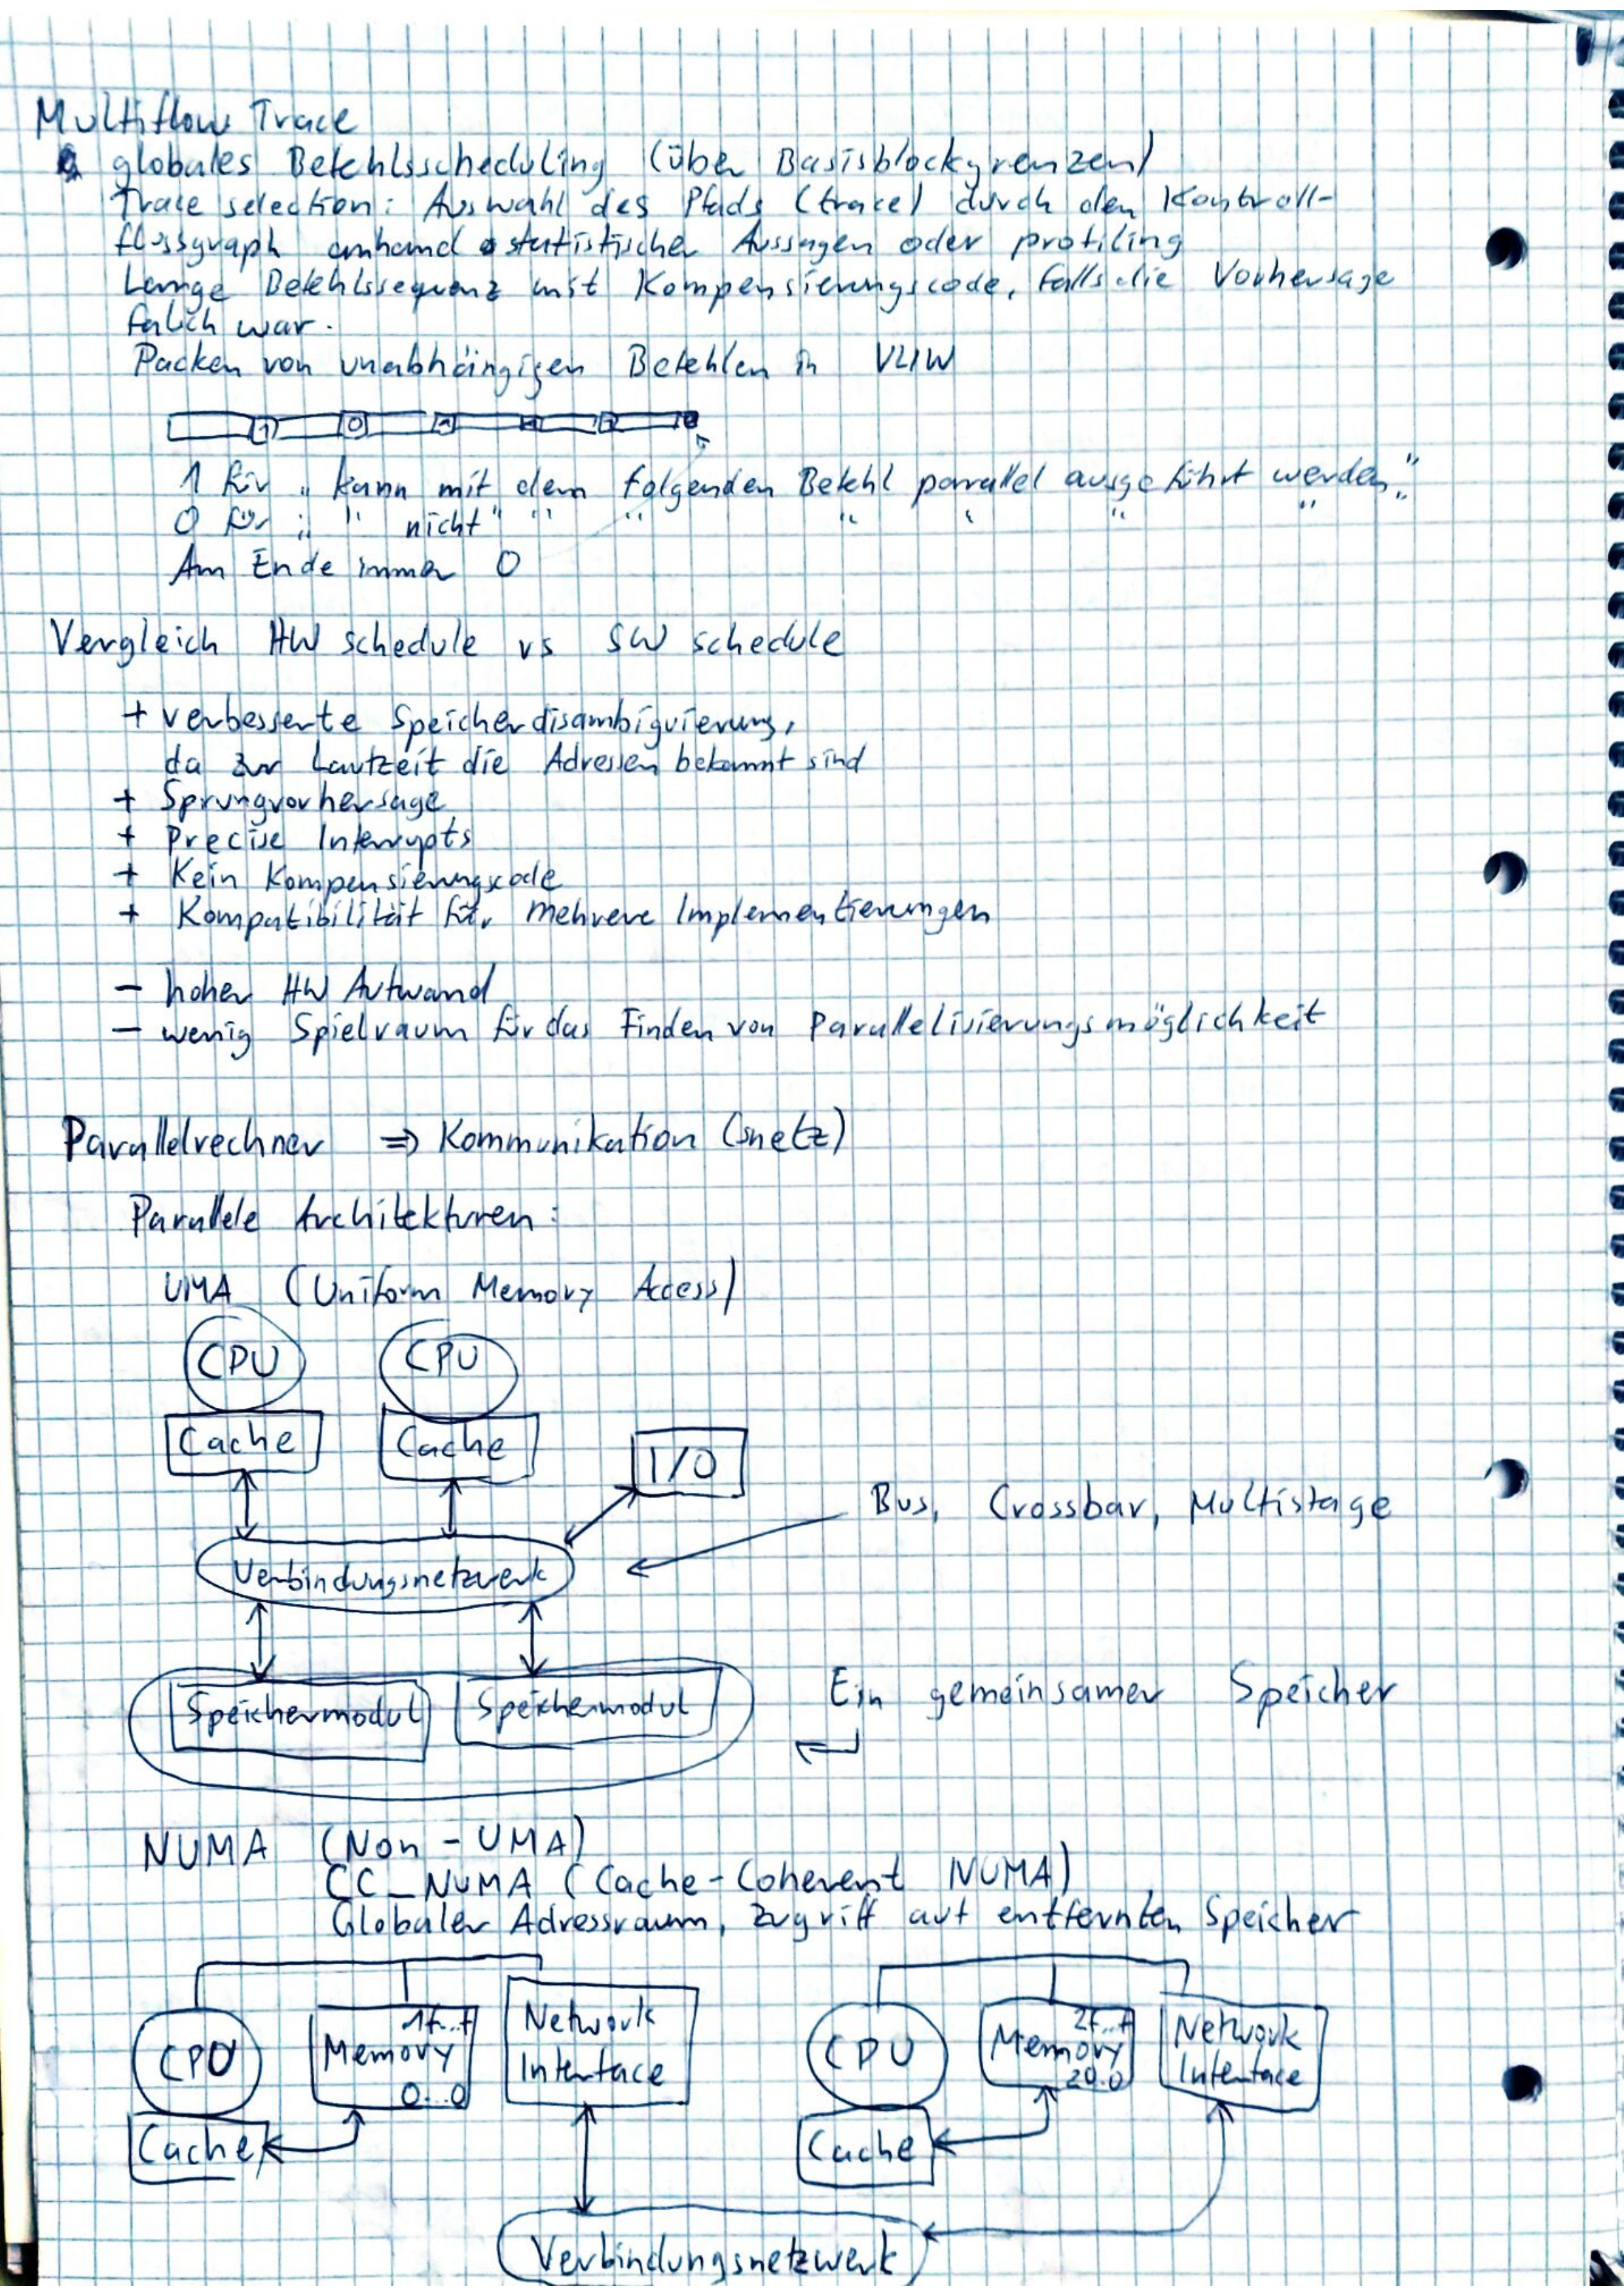 Multiflow Trace
globales Befehlsscheduling (über Basisblockgrenzen)
Trace selection: Auswahl des Pfads (trace) durch den Kontroll-
flussgraph anhand statistischer Aussagen oder profiling
Lange Befehlssequenz mit Kompensierungscode, falls die Vorhersage
falsch war.
Packen von unabhängigen Befehlen in VLIW
1 0
1 für „kann mit dem folgenden Befehl parallel ausgeführt werden"
0 für „ " nicht" " " " " " "
Am Ende immer 0
Vergleich HW schedule vs SW schedule
+ verbesserte Speicherdisambiguierung,
da zur Laufzeit die Adressen bekannt sind
+ Sprungvorhersage
+ Precise Interrupts
+ Kein Kompensierungscode
+ Kompatibilität für mehrere Implementierungen
- hoher HW Aufwand
- wenig Spielraum für das Finden von Parallelisierungsmöglichkeit
Parallelrechner => Kommunikation (snetz)
Parallele Architekturen:
UMA (Uniform Memory Access)
CPU CPU
Cache Cache I/O
Bus, Crossbar, Multistage
Verbindungsnetzwerk
Speichermodul Speichermodul Ein gemeinsamer Speicher
NUMA (Non-UMA)
CC_NUMA (Cache-Coherent NUMA)
Globaler Adressraum, Zugriff auf entfernten Speicher
CPU 1f...f Memory 0...0 Network Interface
CPU 2f..f Memory 20.0 Network Interface
Cache Cache
Verbindungsnetzwerk